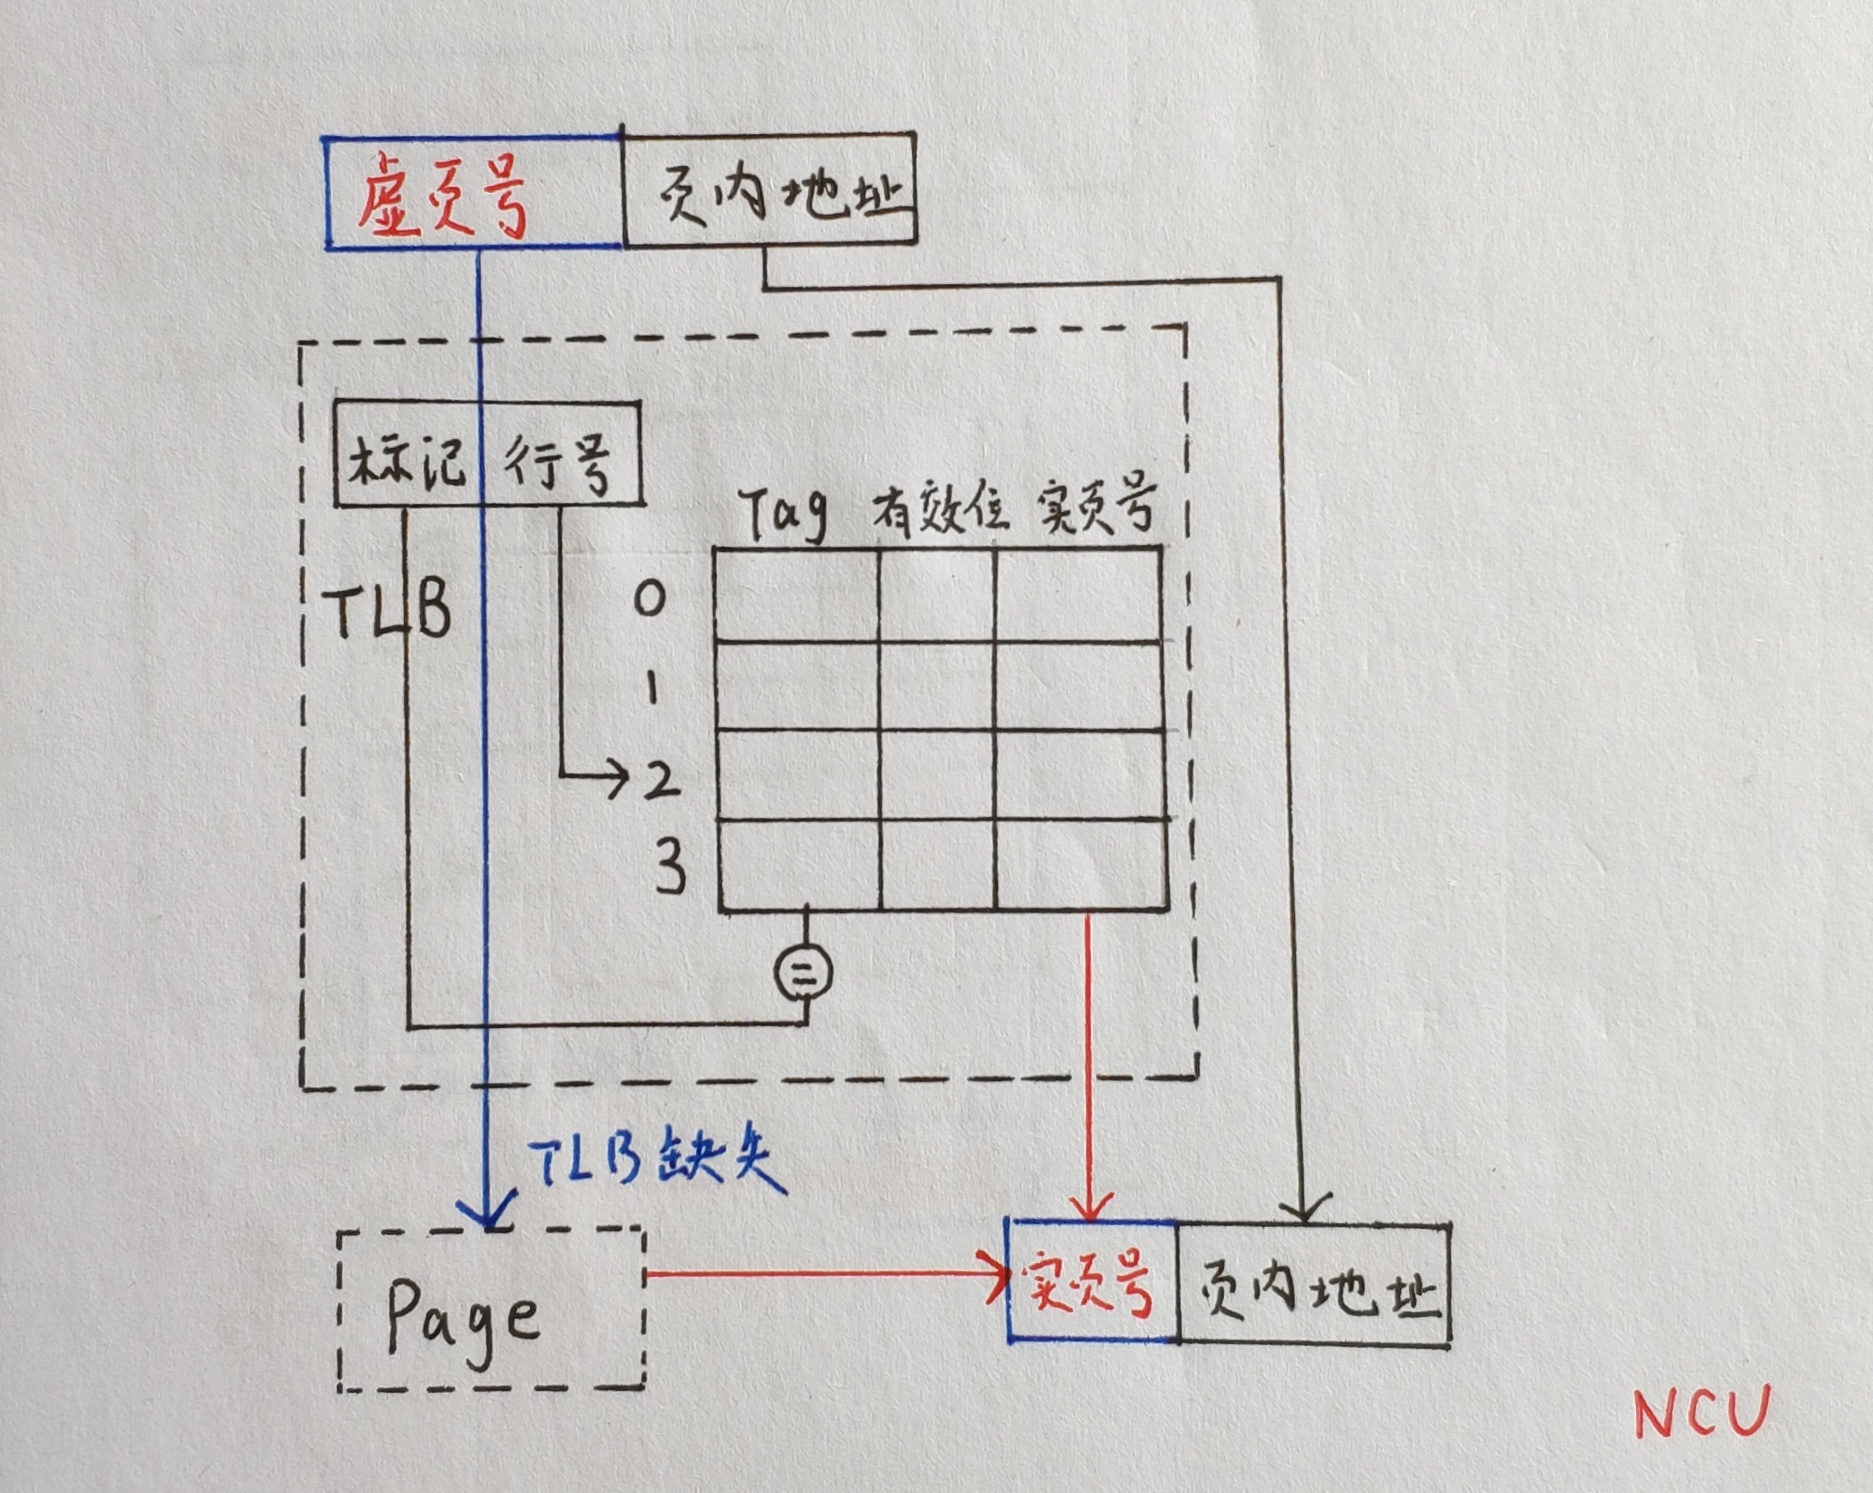 虚页号 页内地址
标记 行号
Tag 有效位 实页号
TLB
0
1
2
3
=
TLB缺失
Page
实页号 页内地址
NCU